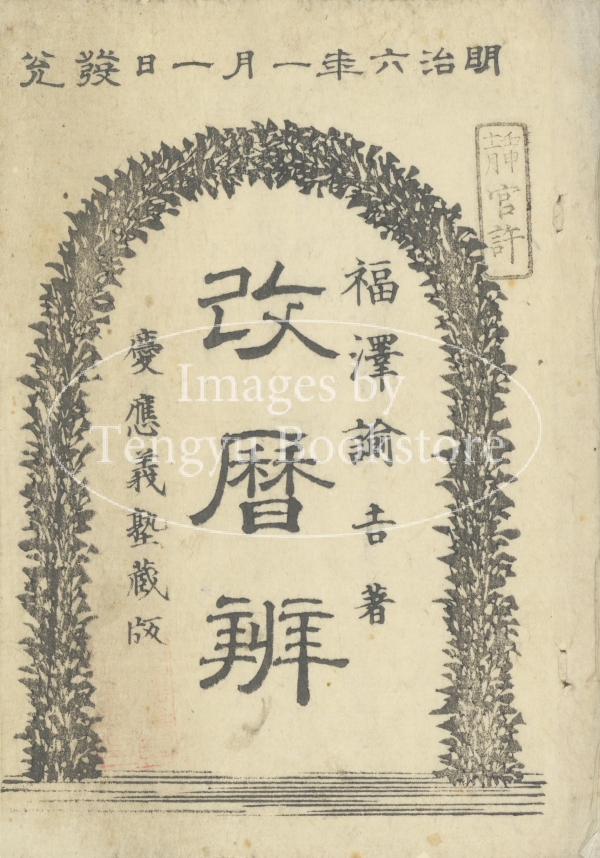 明治六年一月一日發兌
官許
福澤諭吉著
改暦辨
慶應義塾藏版
Images by
Tengyu Bookstore